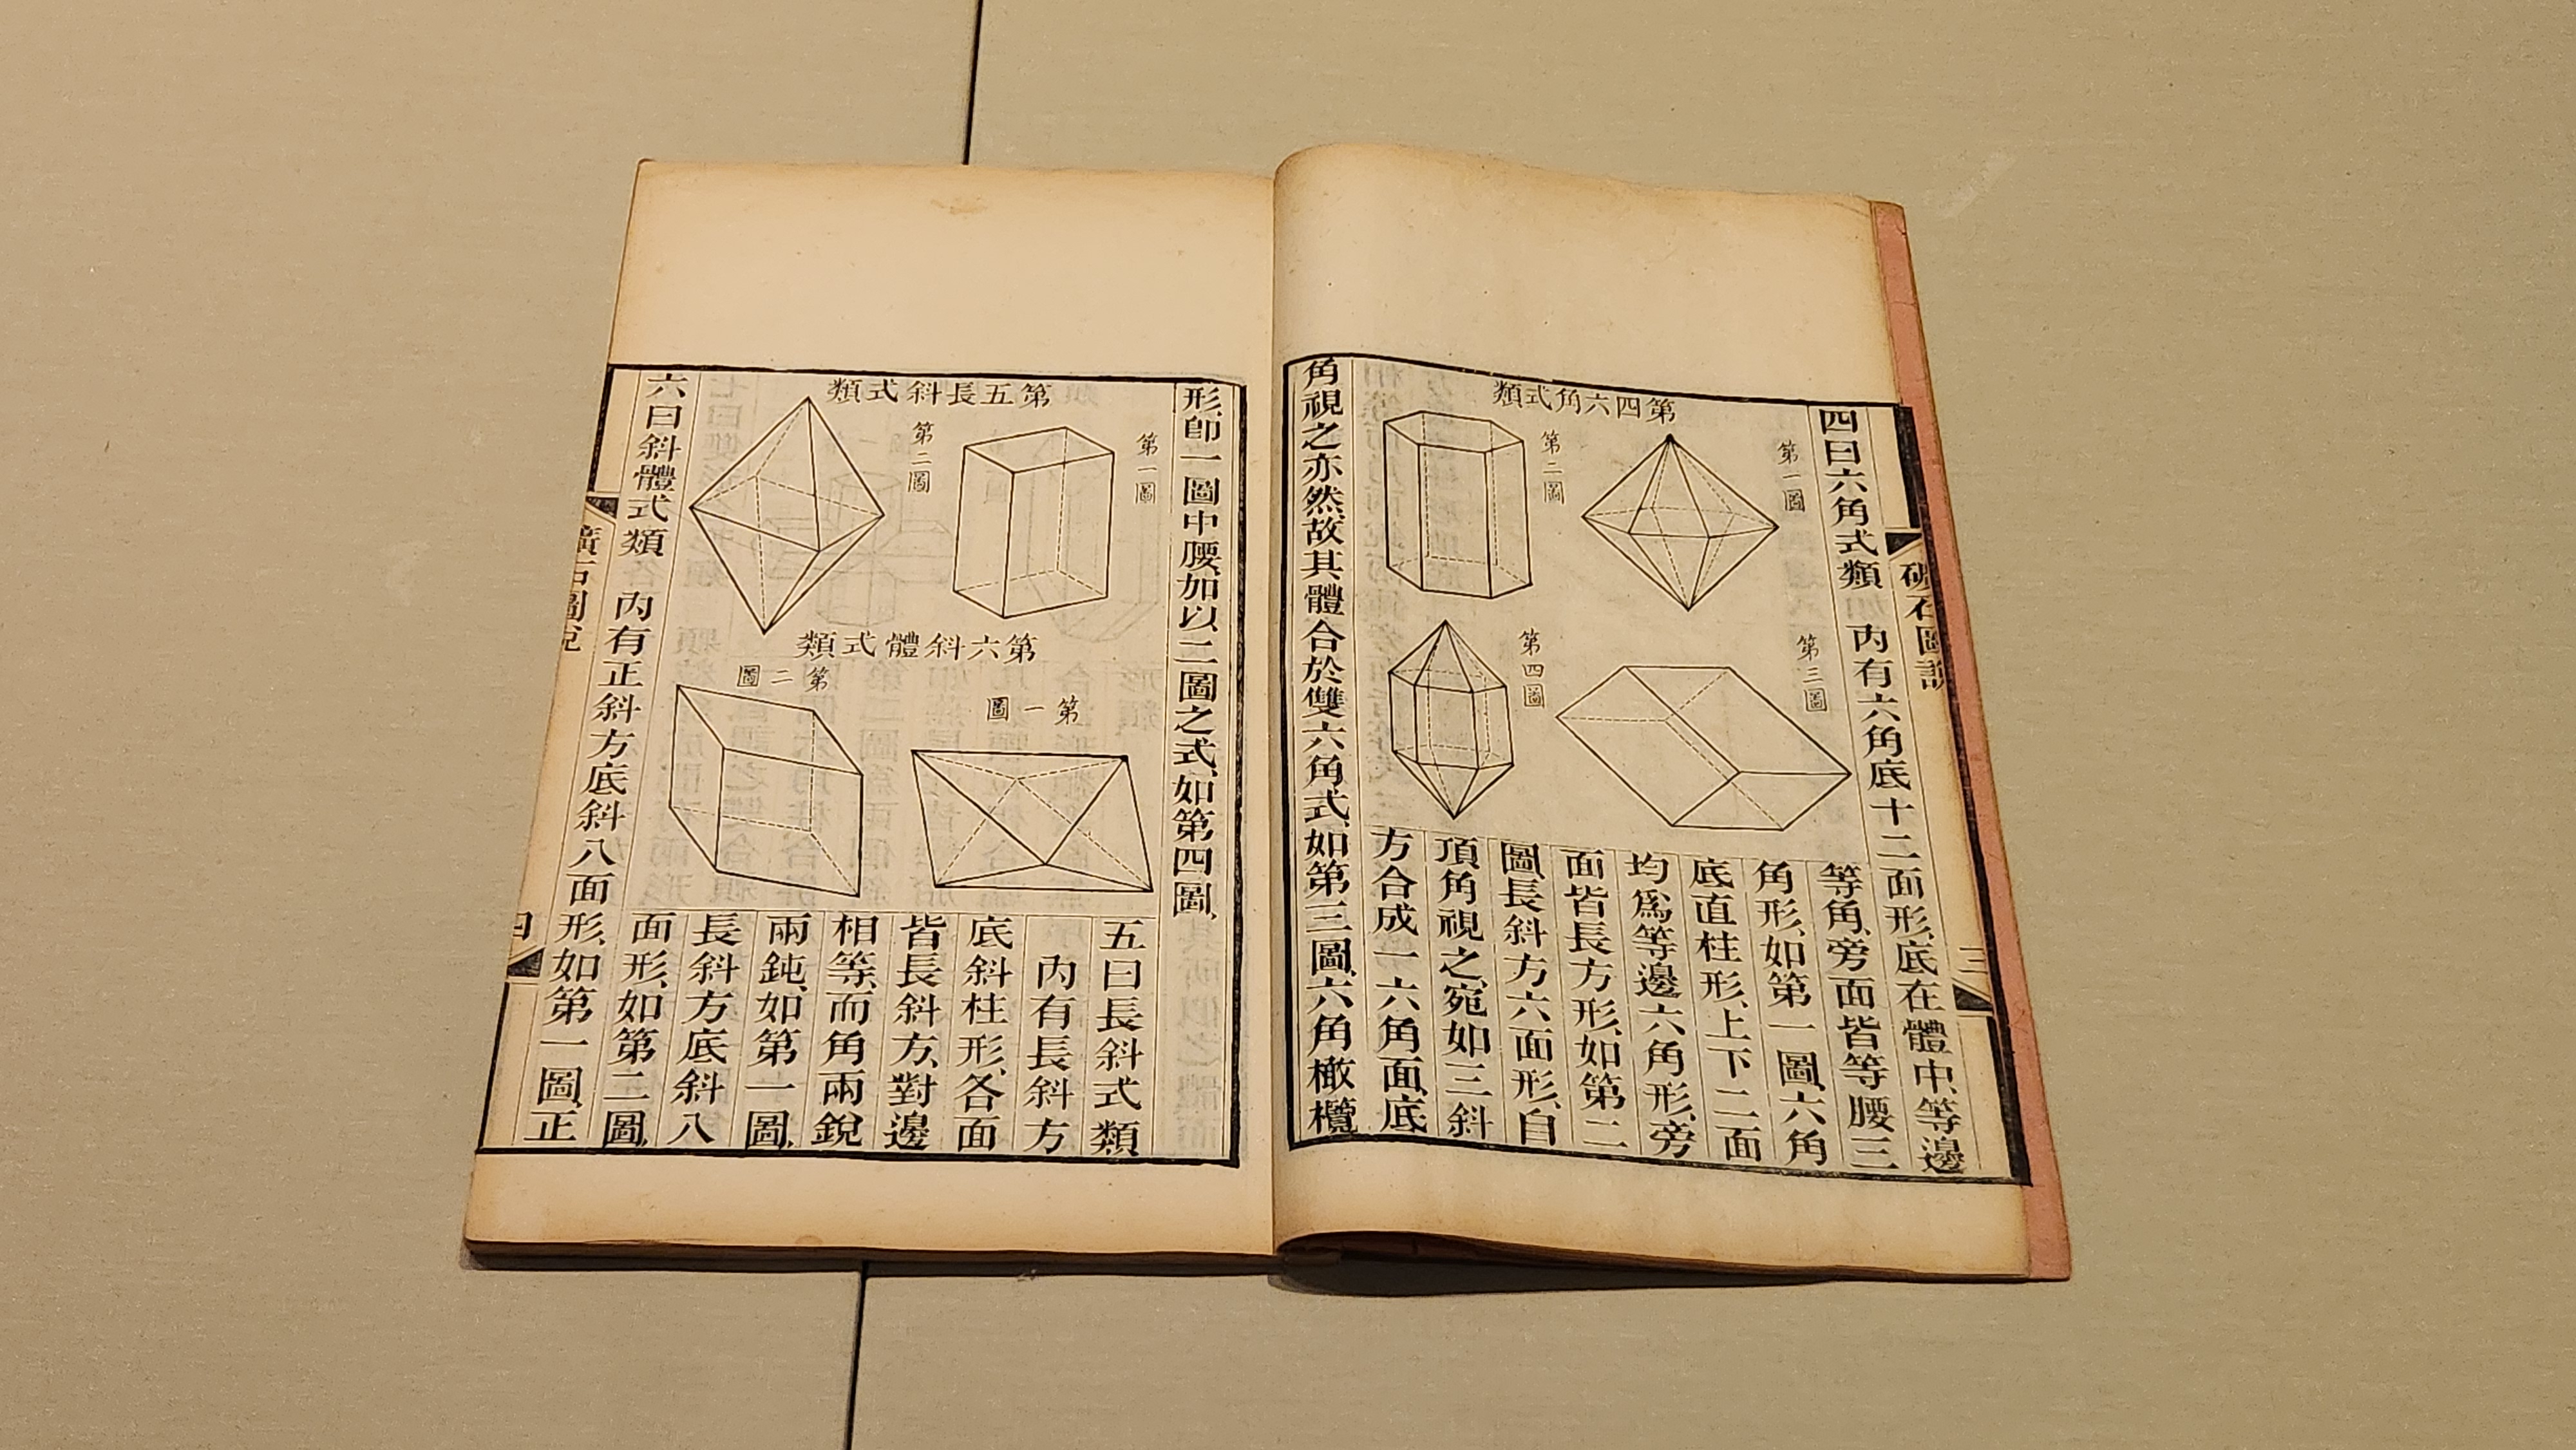 礦石圖說
三
四曰六角式類 內有六角底十二面形、底在體中、等邊
第四六角式類
第一圖
第二圖
第三圖
第四圖
等角、旁面皆等腰三
角形、如第一圖、六角
底直柱形、上下二面
均爲等邊六角形、旁
面皆長方形、如第二
圖、長斜方六面形、自
頂角視之、宛如三斜
方合成一六角面、底
角視之亦然、故其體合於雙六角式、如第三圖、六角橄欖
形、卽一圖中腰、如以二圖之式、如第四圖、
第五長斜式類
第一圖
第二圖
第六斜體式類
第一圖
第二圖
五曰長斜式類
內有長斜方
底斜柱形、各面
皆長斜方、對邊
相等、而角兩銳
兩鈍、如第一圖、
長斜方底斜八
面形、如第二圖、
六曰斜體式類 內有正斜方底斜八面形、如第一圖、正
礦石圖說
四